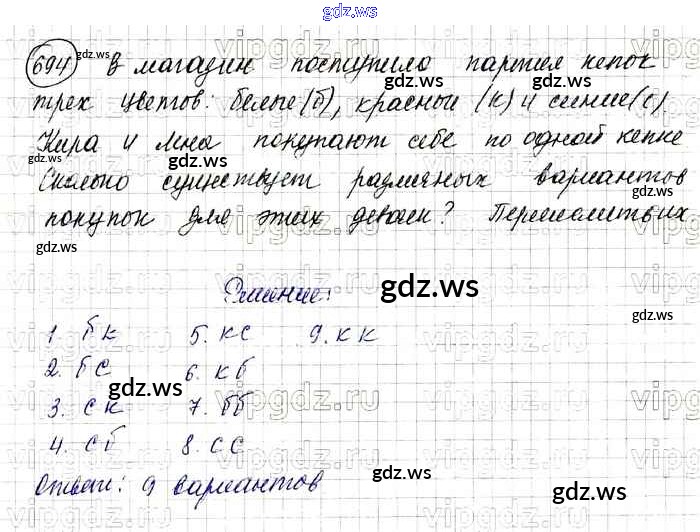 gdz.ws
694 В магазин поступило партия кепок
трех цветов: белые (б), красные (к) и синие (с)
Кира и Инна покупают себе по одной кепке
Сколько существует различных вариантов
покупок для этих девочек? Перечислить их
Решение:
1. бк 5. кс 9. кк
2. бс 6. кб
3. ск 7. бб
4. сб 8. сс
Ответ: 9 вариантов